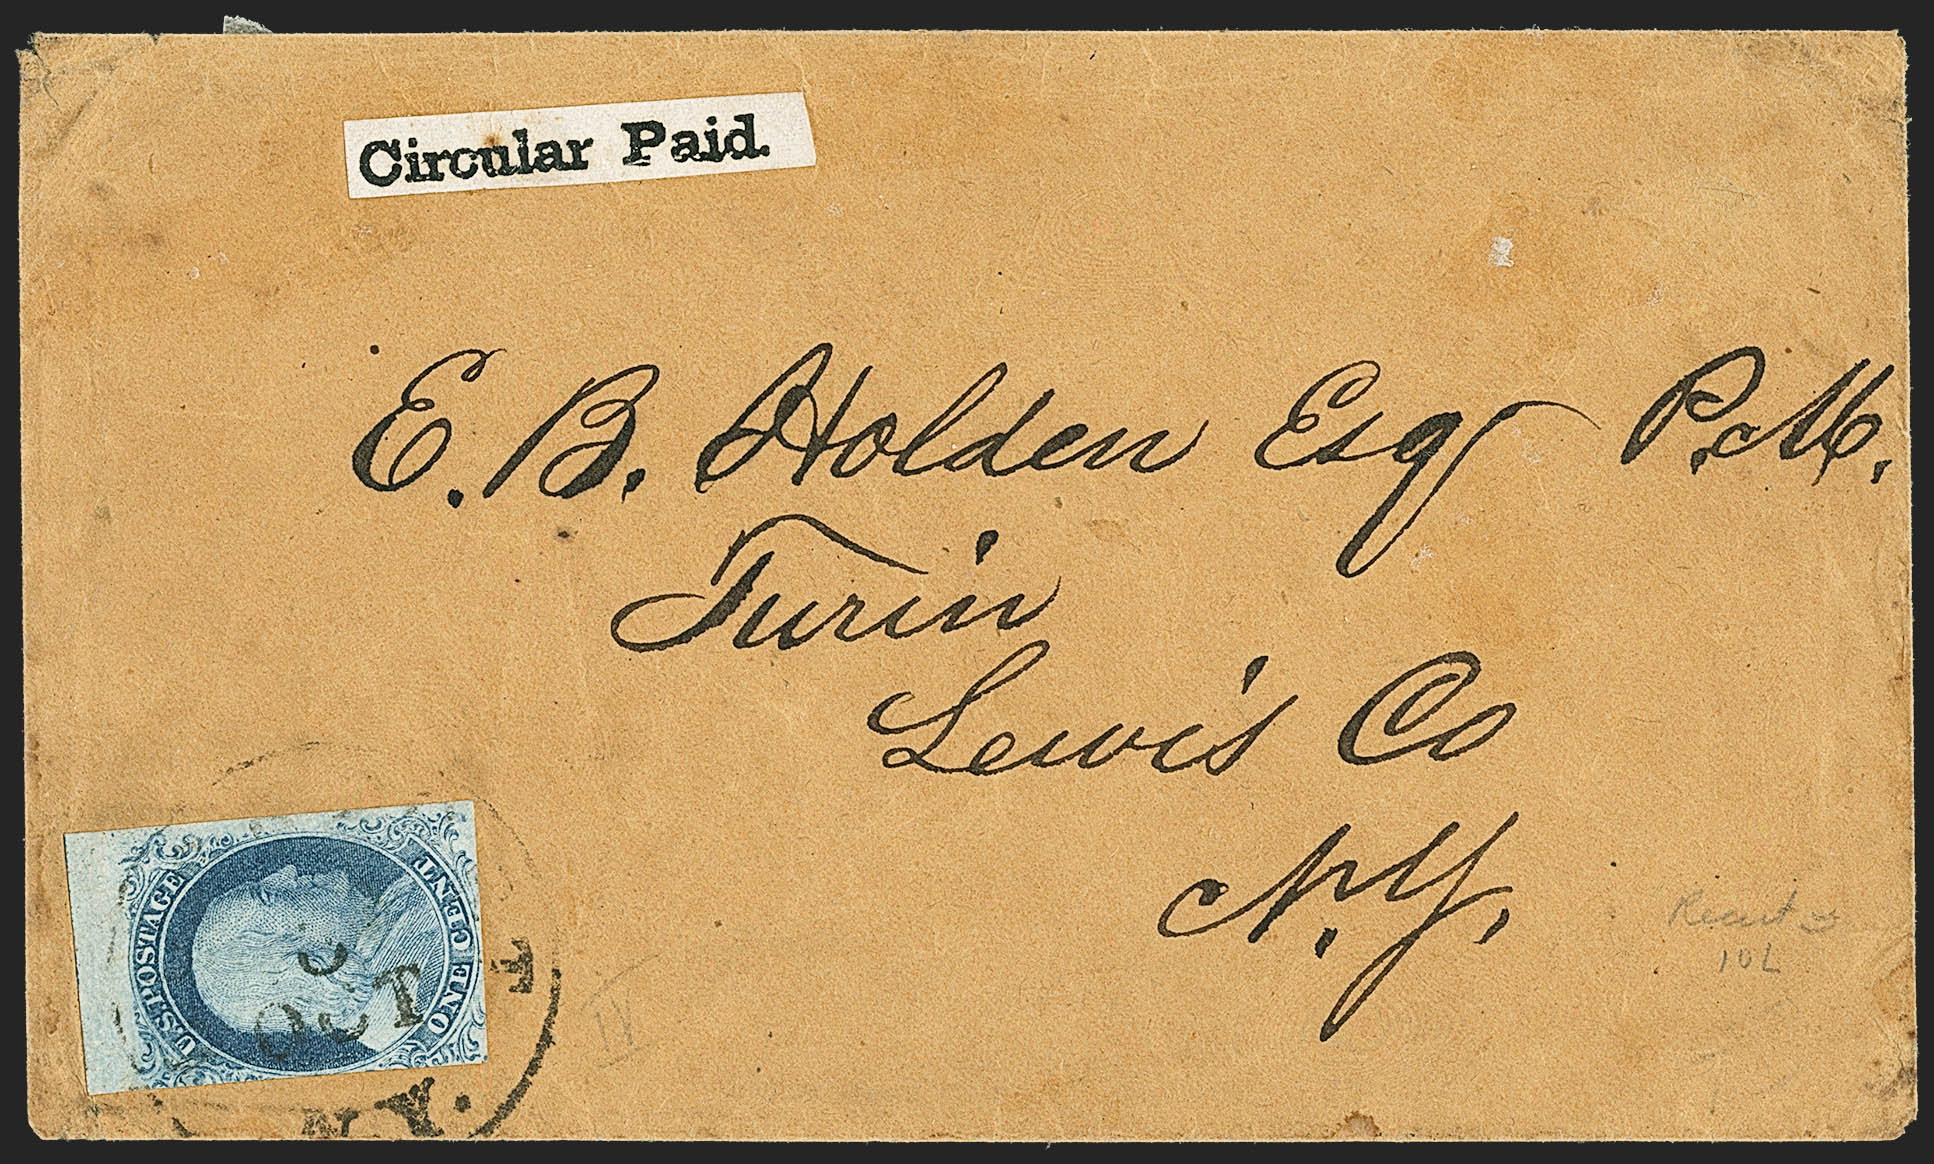 Circular Paid.
E. B. Holden Esq P.M.
Turin
Lewis Co
N.Y.
U.S. POSTAGE
ONE CENT
OCT
N.Y.
IV
10L